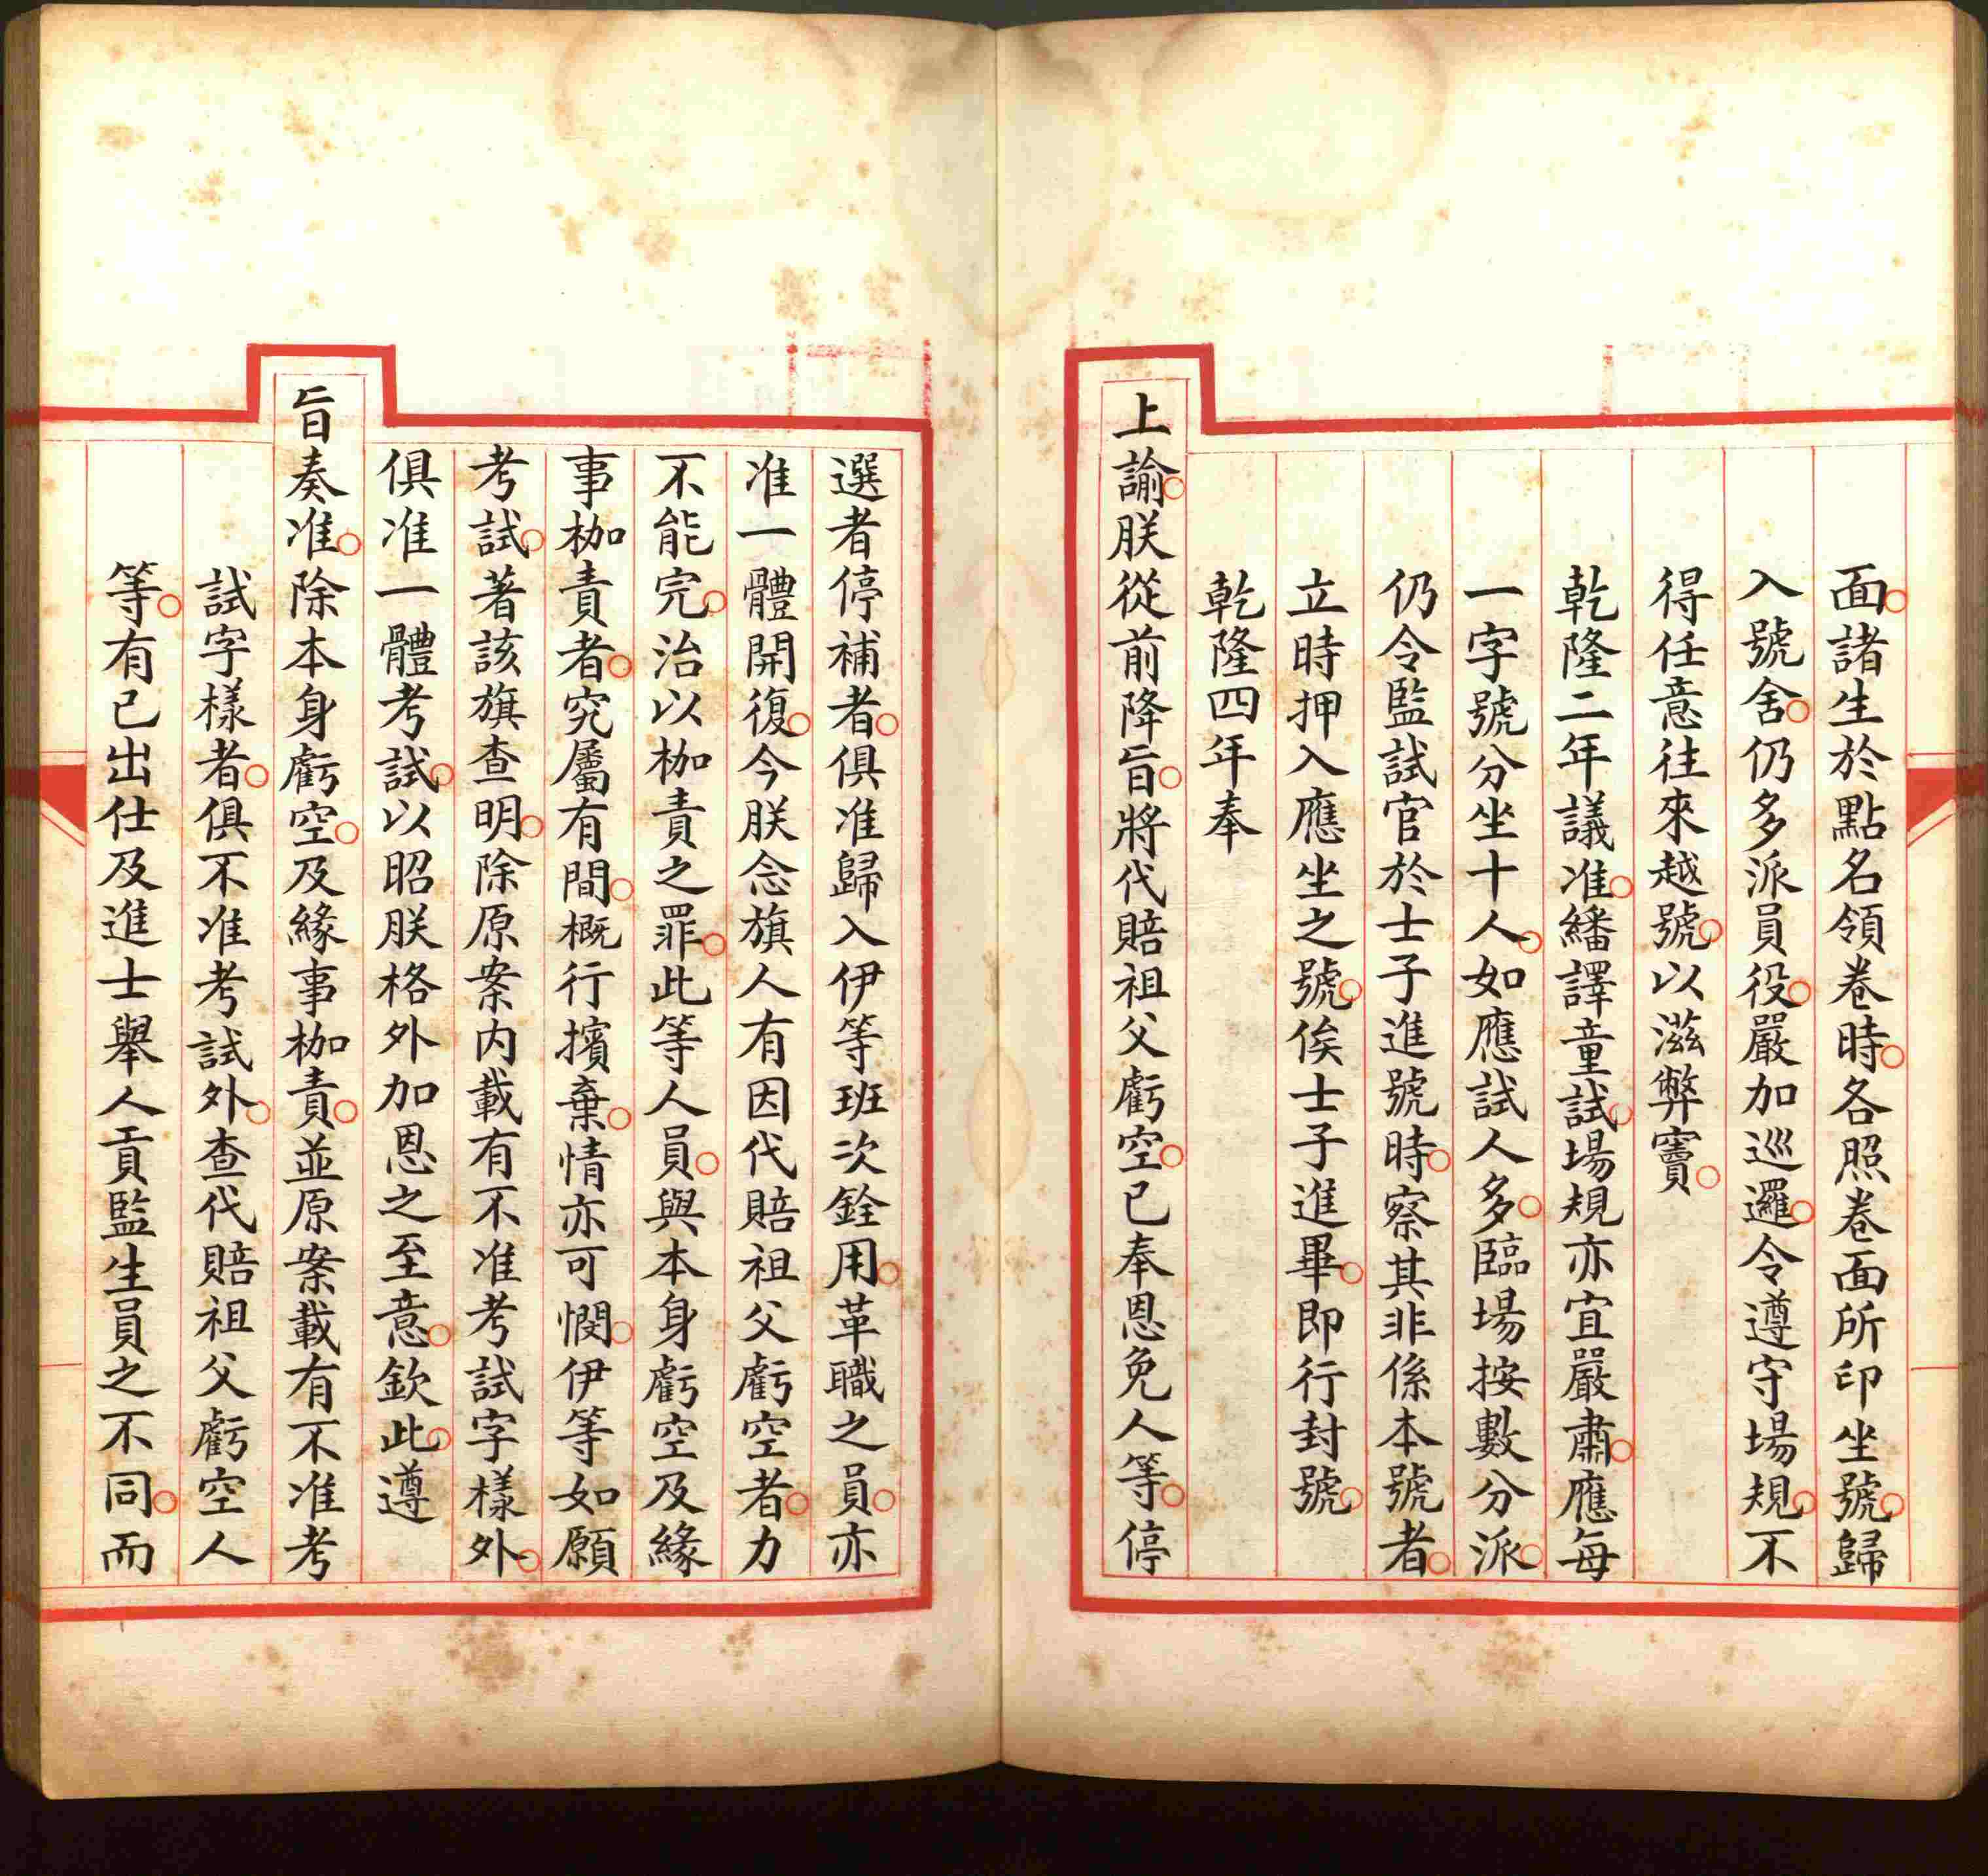 面諸生於點名領卷時各照卷面所印坐號歸
入號舍仍多派員役嚴加巡邏令遵守場規不
得任意往來越號以滋弊竇
乾隆二年議准繙譯童試場規亦宜嚴肅應每
一字號分坐十人如應試人多臨場按數分派
仍令監試官於士子進號時察其非係本號者
立時押入應坐之號俟士子進畢即行封號
乾隆四年奉
上諭朕從前降旨將代賠祖父虧空已奉恩免人等停
選者停補者俱准歸入伊等班次銓用革職之員亦
准一體開復今朕念旗人有因代賠祖父虧空者力
不能完治以枷責之罪此等人員與本身虧空及緣
事枷責者究屬有間概行擯棄情亦可憫伊等如願
考試著該旗查明除原案内載有不准考試字樣外
俱准一體考試以昭朕格外加恩之至意欽此遵
旨奏准除本身虧空及緣事枷責並原案載有不准考
試字樣者俱不准考試外查代賠祖父虧空人
等有已出仕及進士舉人貢監生員之不同而